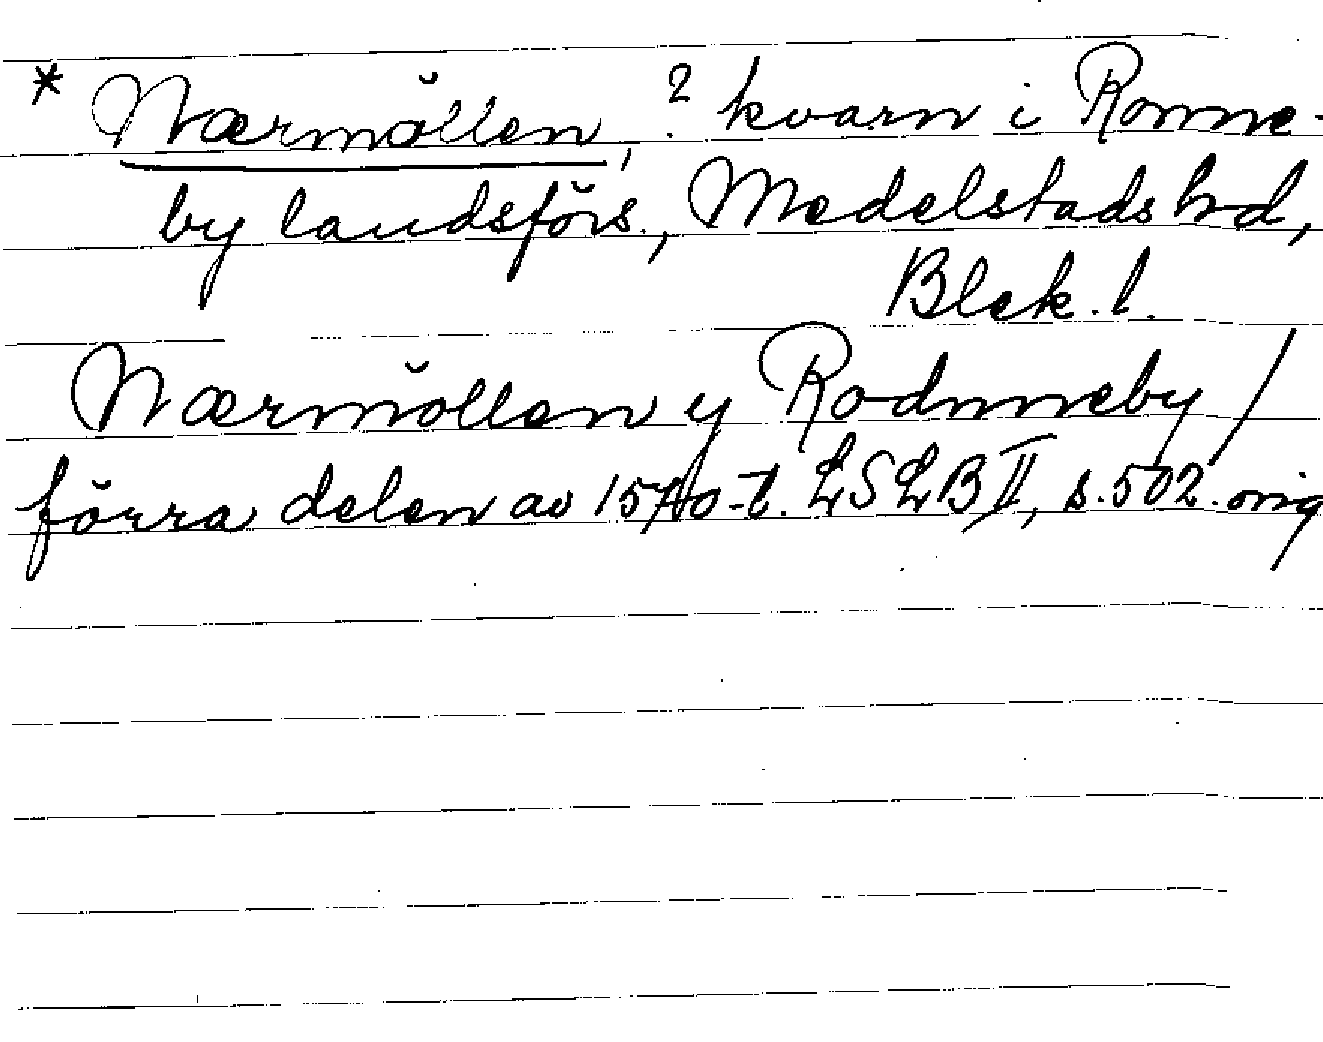 * Nærmöllen, ? kvarn i Ronne-
by landsförs., Medelstads hd,
Blek. l.
Nærmöllen y Rodnneby /
förra delen av 1570-t. LSLB II, s. 502. orig